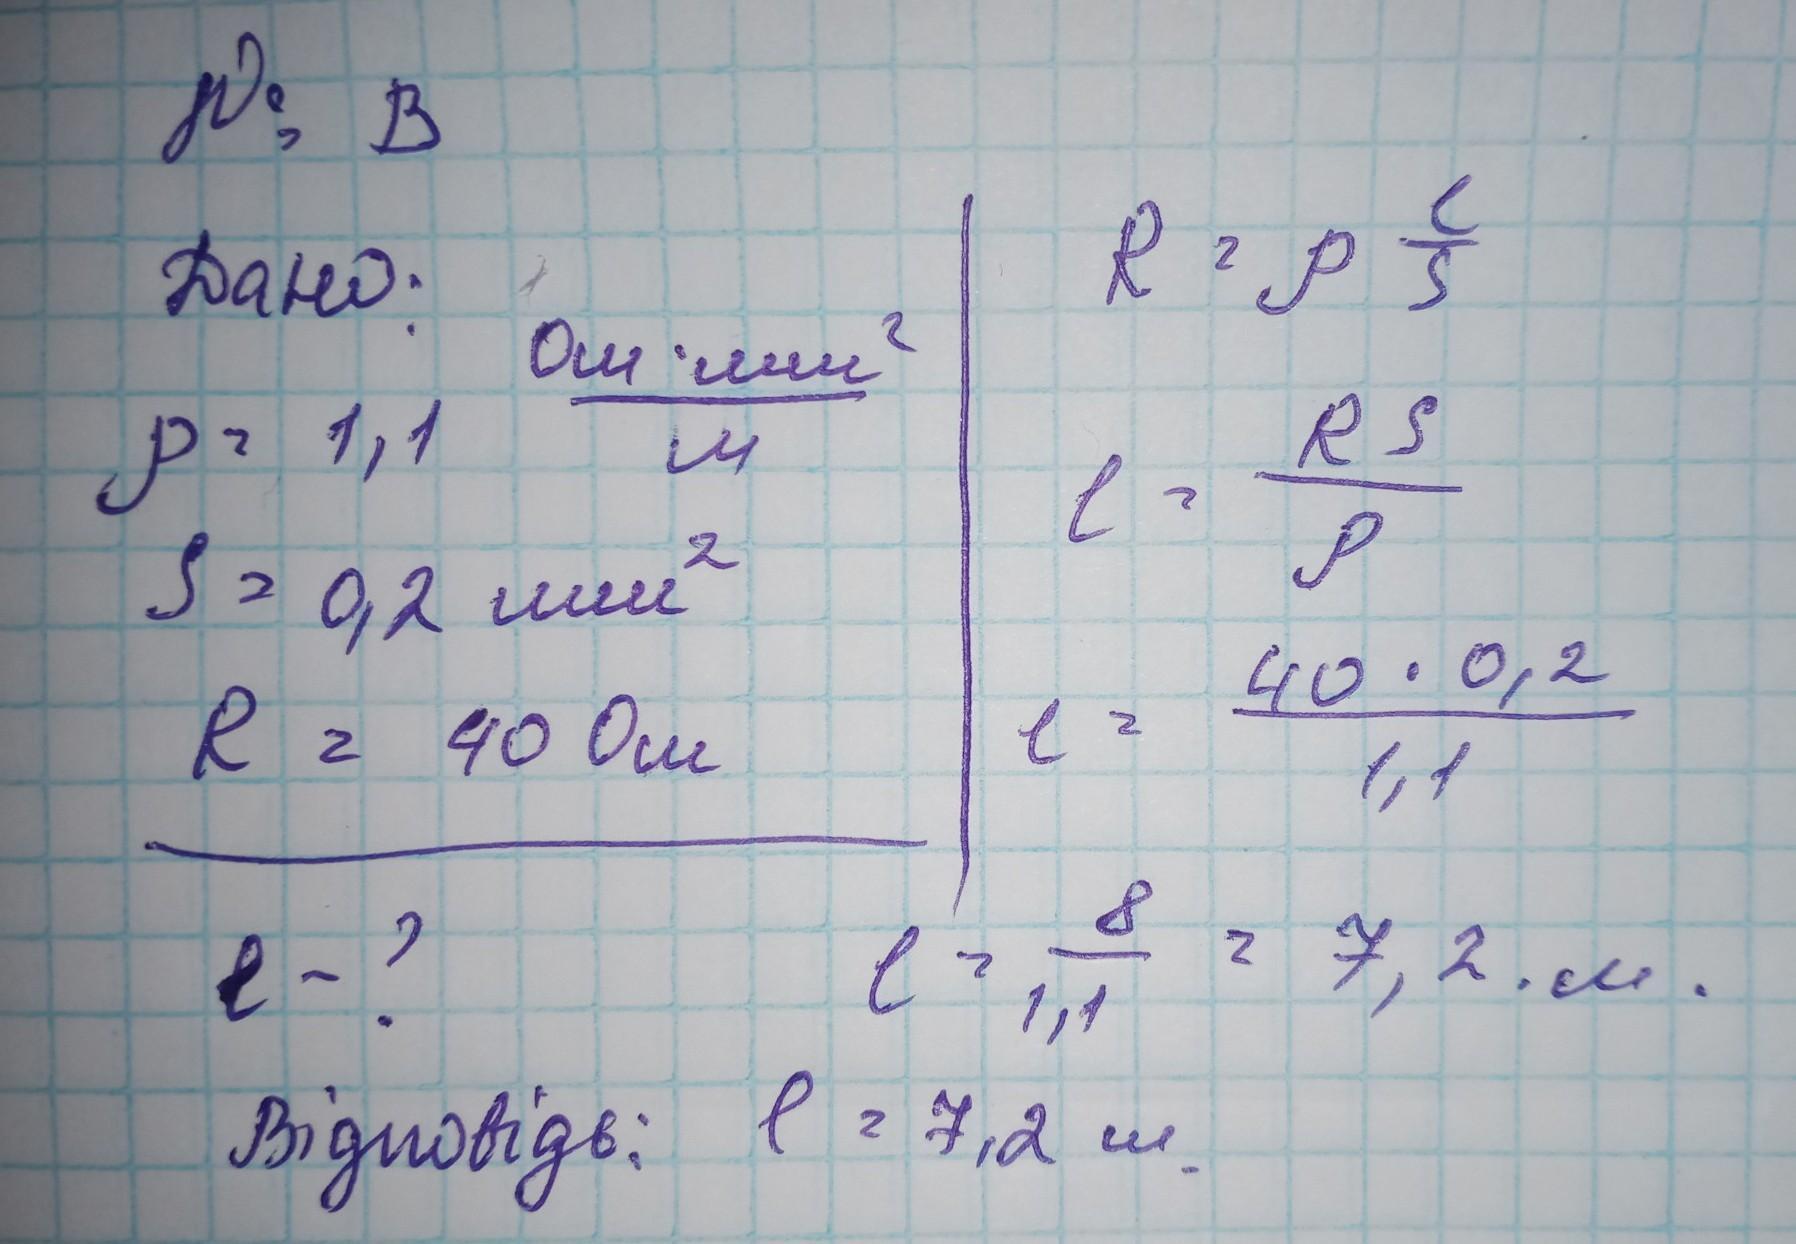 №; В
Дано:
ρ = 1,1 Ом·мм²/м
S = 0,2 мм²
R = 40 Ом
l - ?
R = ρ l/S
l = RS/ρ
l = 40 · 0,2/1,1
l = 8/1,1 = 7,2 . м .
Відповідь: l = 7,2 м.